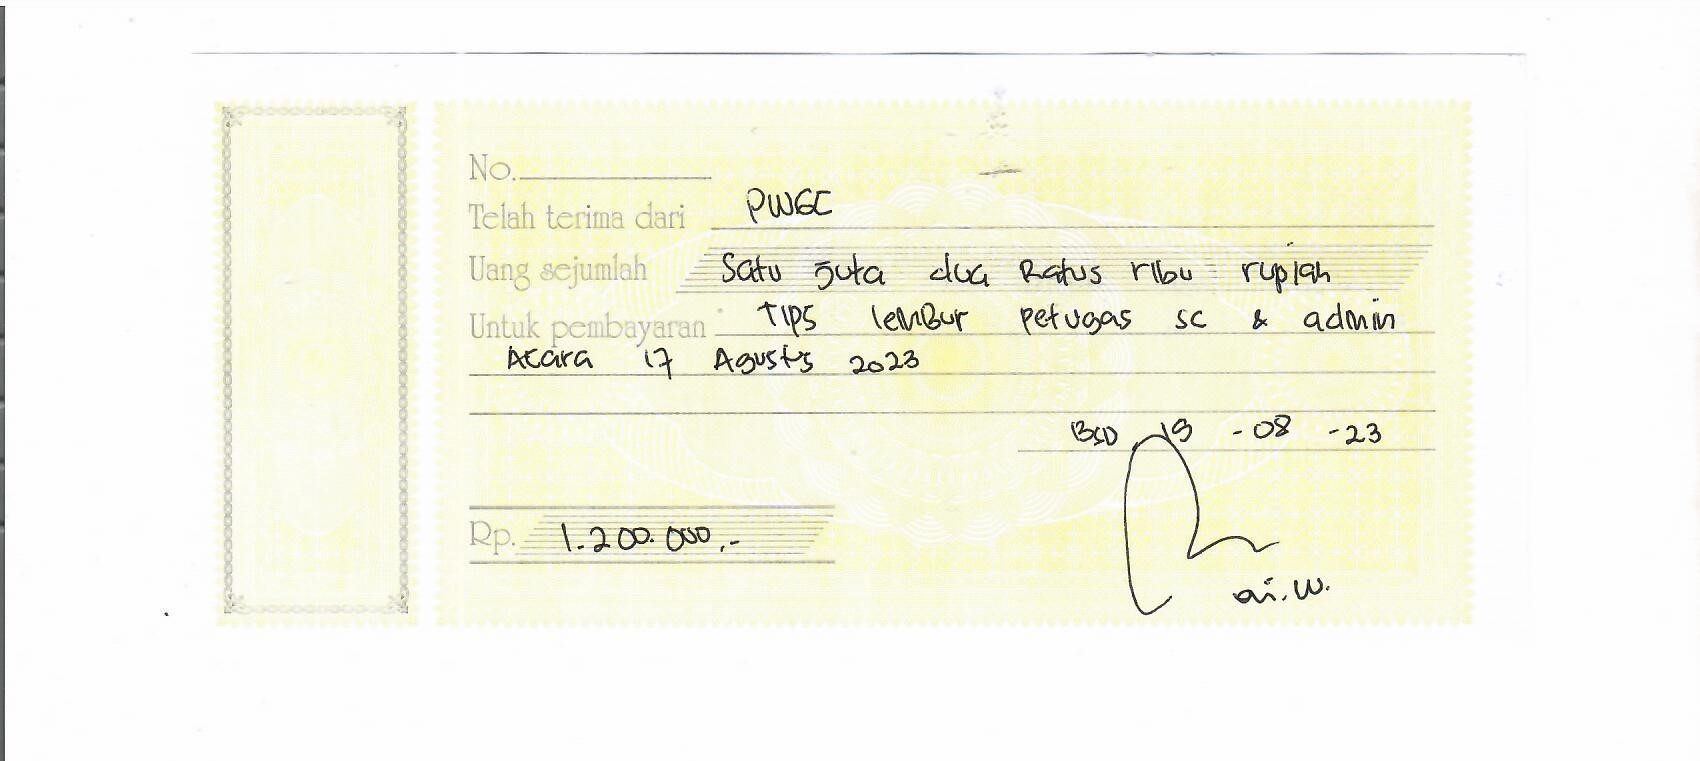 No.
Telah terima dari PWGC
Uang sejumlah Satu Juta dua Ratus ribu rupiah
Untuk pembayaran TIPS lemBur petugas sc & admin
Acara 17 Agusts 2023
BSD 19 -08 -23
Rp. 1.200.000,-
ari.W.